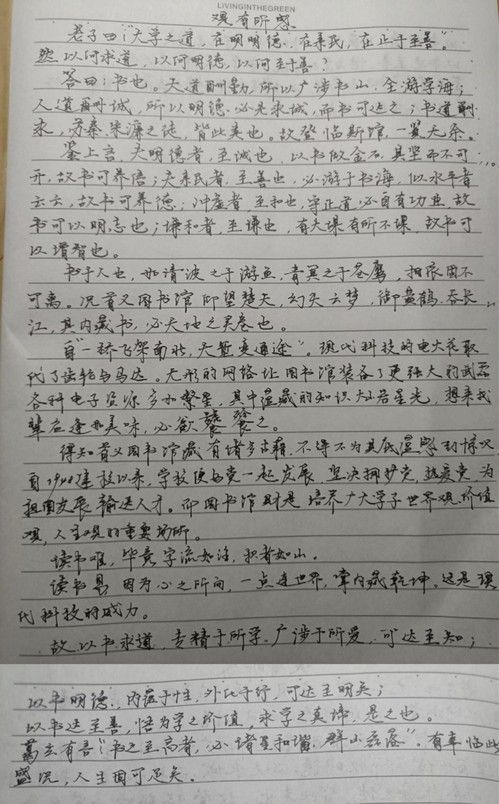 LIVINGINTHEGREEN
观有所感
老子曰:"大学之道,在明明德,在亲民,在止于至善"。
然以何求道,以何明德,以何至于善?
答曰:书也。天道酬勤,所以广涉书山,全游学海;
人道酬诚,所以明德必是求诚,而书可达之;书道酬
求,苏秦朱濂之徒,皆此类也。故登临斯馆,一览无余。
鉴上言,夫明德者,至诚也,以书做金石,其坚而不可
开,故书可养信;夫亲民者,至善也,必游于书海,似水平者
云云,故书可养德;冲虚者,至和也,守正道,必自有功业,故
书可以明志也;谦和者,至谦也,有大课有所不课,故书可
以增智也。
书于人也,如清波之于游鱼,青冥之于苍鹰,相依固不
可离。况首义图书馆仰望楚天,幻头云梦,御黄鹤,吞长
江,其内藏书,必天地之灵卷也。
自"一桥飞架南北,天堑变通途"。现代科技的电火花取
代了齿轮与马达。无形的网络让图书馆装备了更强大的武器
各种电子资源多如繁星,其中蕴藏的知识灿若星光,想来我
辈若逢此美味,必欲饕餮之。
得知首义图书馆藏有诸多古籍,不得不为其底蕴感到惊叹
自1948建校以来,学校便与党一起发展,坚决拥护党,热爱党,为
祖国发展输送人才。而图书馆则是培养广大学子世界观、价值
观,人生观的重要场所。
读书难,毕竟字流如注,积者如山。
读书易,因为心之所向,一点连世界,掌内藏乾坤。这是现
代科技的威力。
故以书求道,专精于所学,广涉于所爱,可达至知;
以书明德,内蕴于性,外化于行,可达至明矣;
以书达至善,悟为学之价值,求学之真谛,是之也。
葛玄有言:"书之至高者,必诸星和谐,群山磊落"。有幸临此
盛况,人生固可足矣。